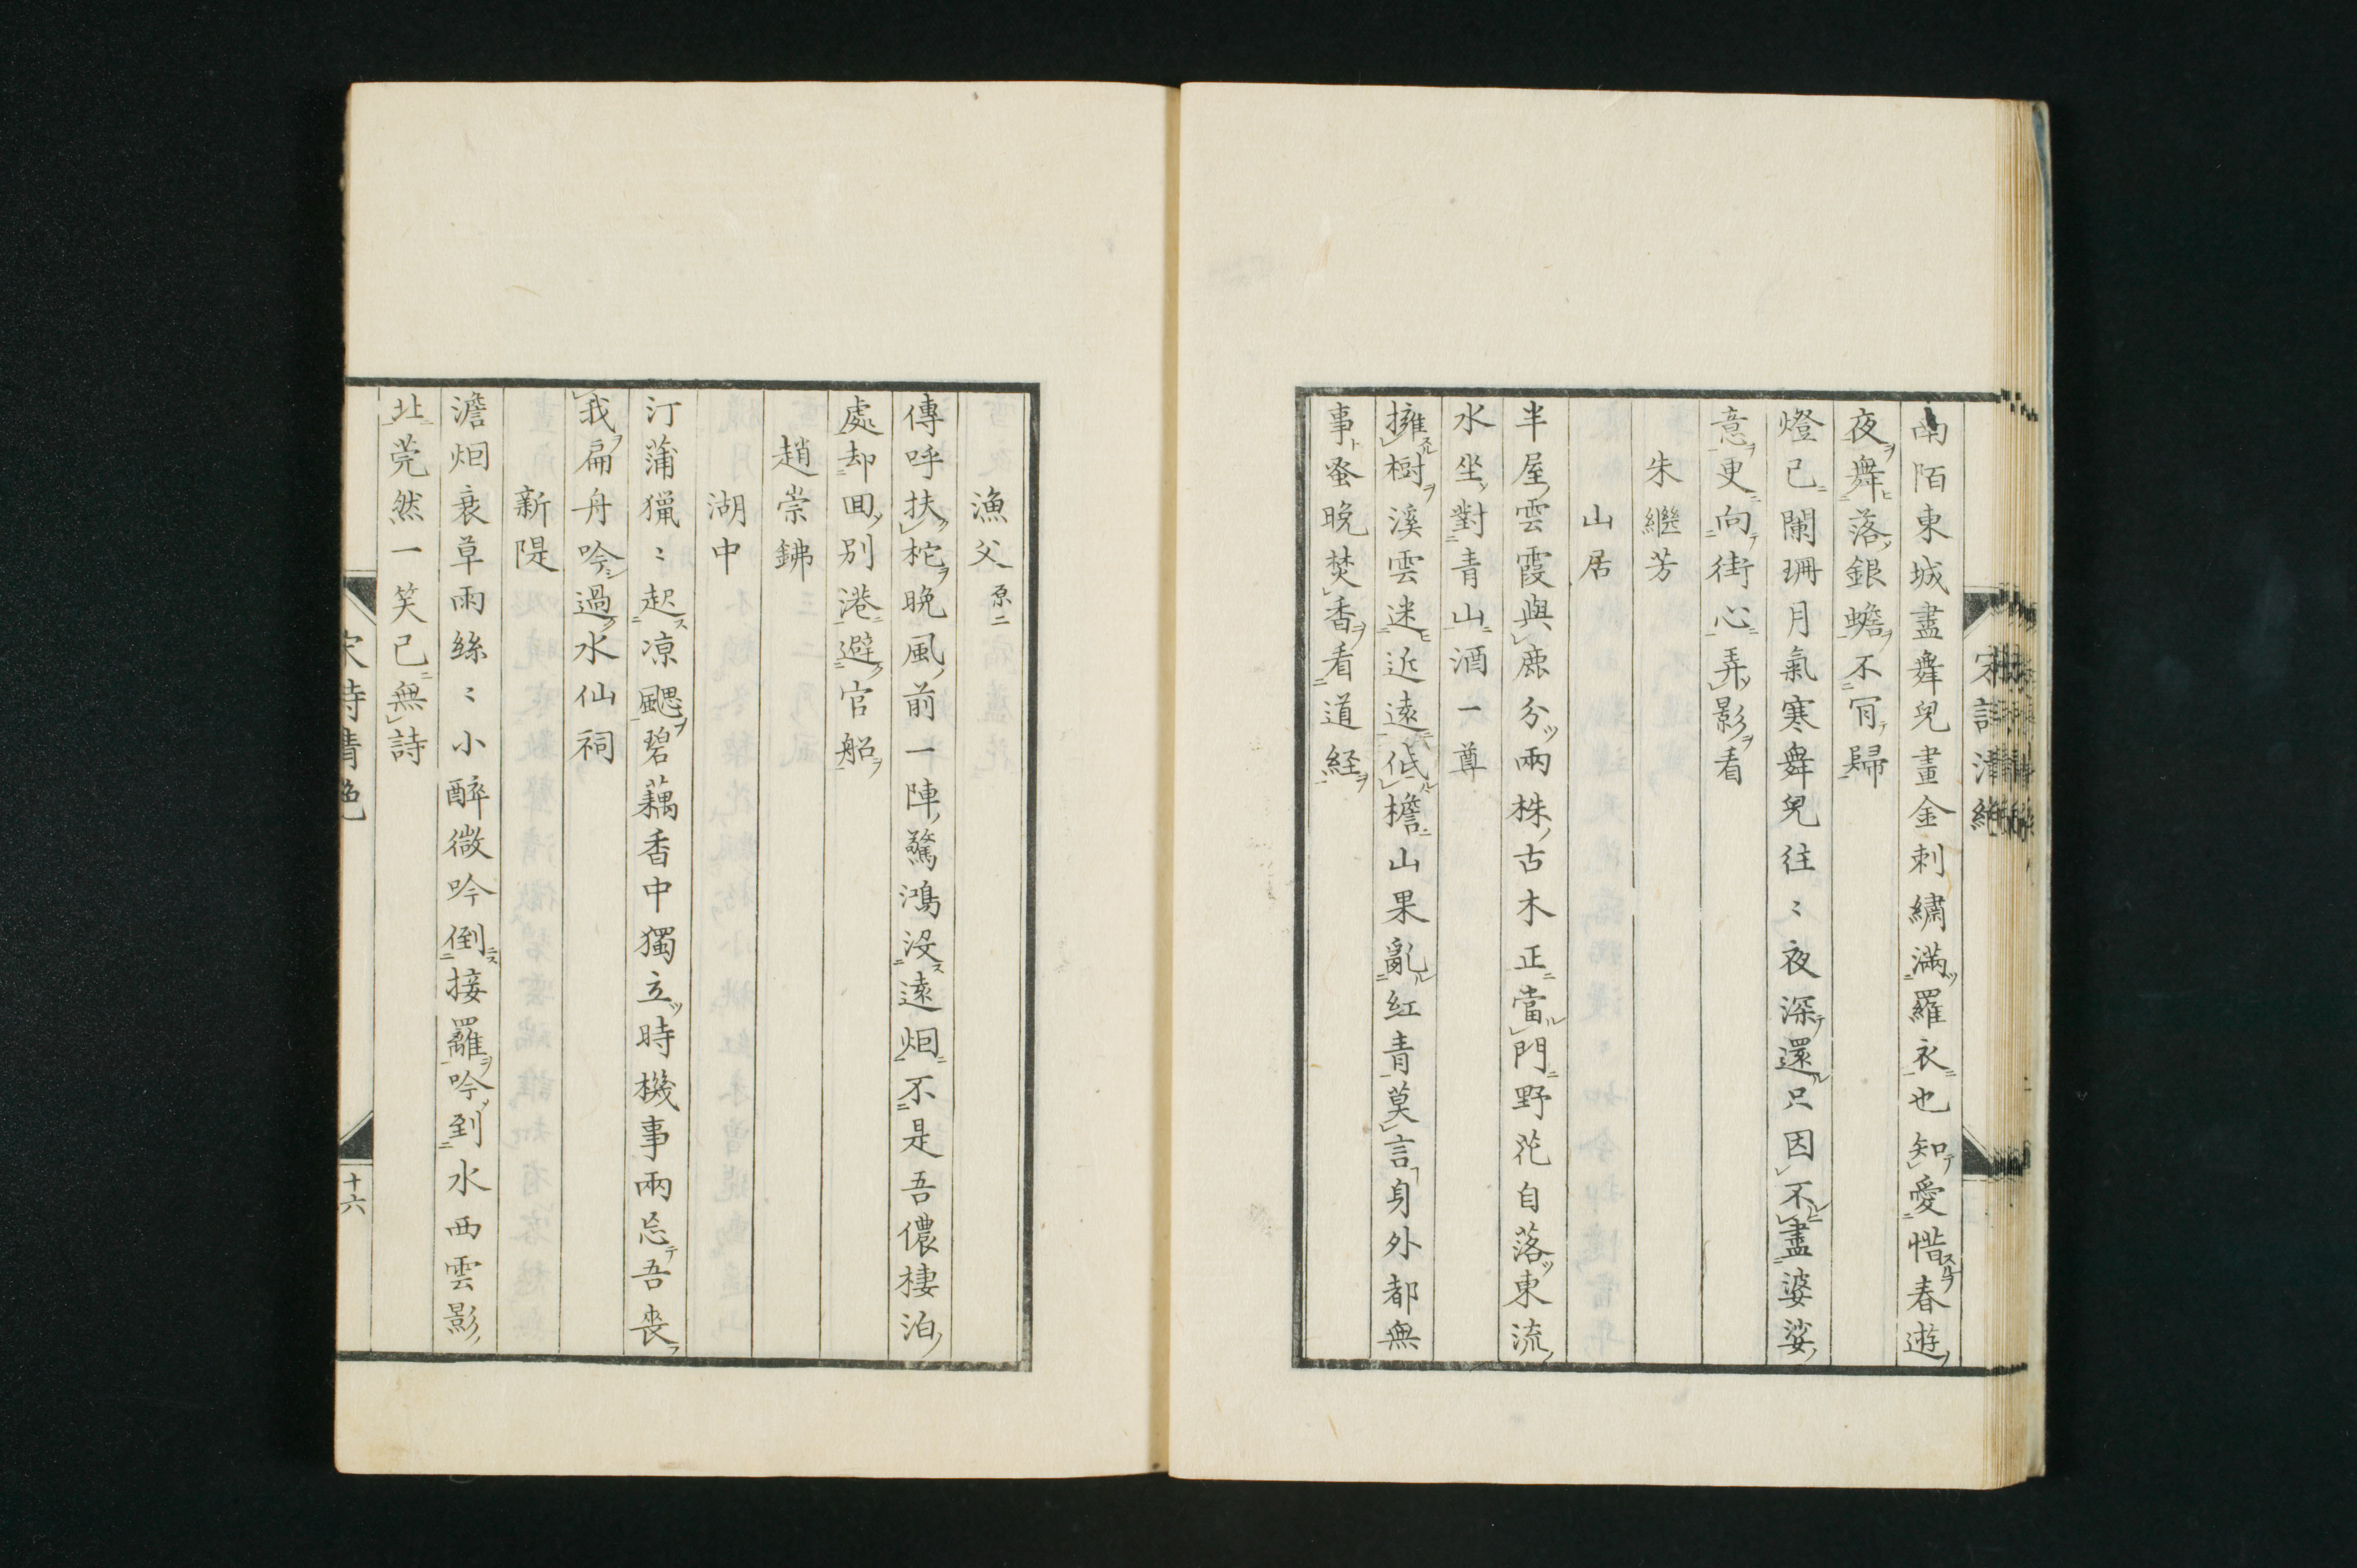 南陌東城盡舞兒畫金刺繡滿羅衣也知愛惜春遊
夜舞落銀蟾不肎歸
燈已闌珊月氣寒舞兒往〻夜深還只因不盡婆娑
意更向街心弄影看
朱繼芳
山居
半屋雲霞與鹿分兩株古木正當門野花自落東流
水坐對青山酒一尊
擁樹溪雲迷近遠低檐山果亂紅青莫言身外都無
事蚤晚焚香看道経
漁父 原二
傳呼扶柁晚風前一陣驚鴻没遠烟不是吾儂棲泊
處却回別港避官船
趙崇鉘
湖中
汀蒲獵〻起凉颸碧藕香中獨立時機事兩忘吾喪
我扁舟吟過水仙祠
新隄
澹烟衰草雨絲〻小醉微吟倒接䍦吟到水西雲影
北莞然一笑已無詩
宋詩清絕
十六